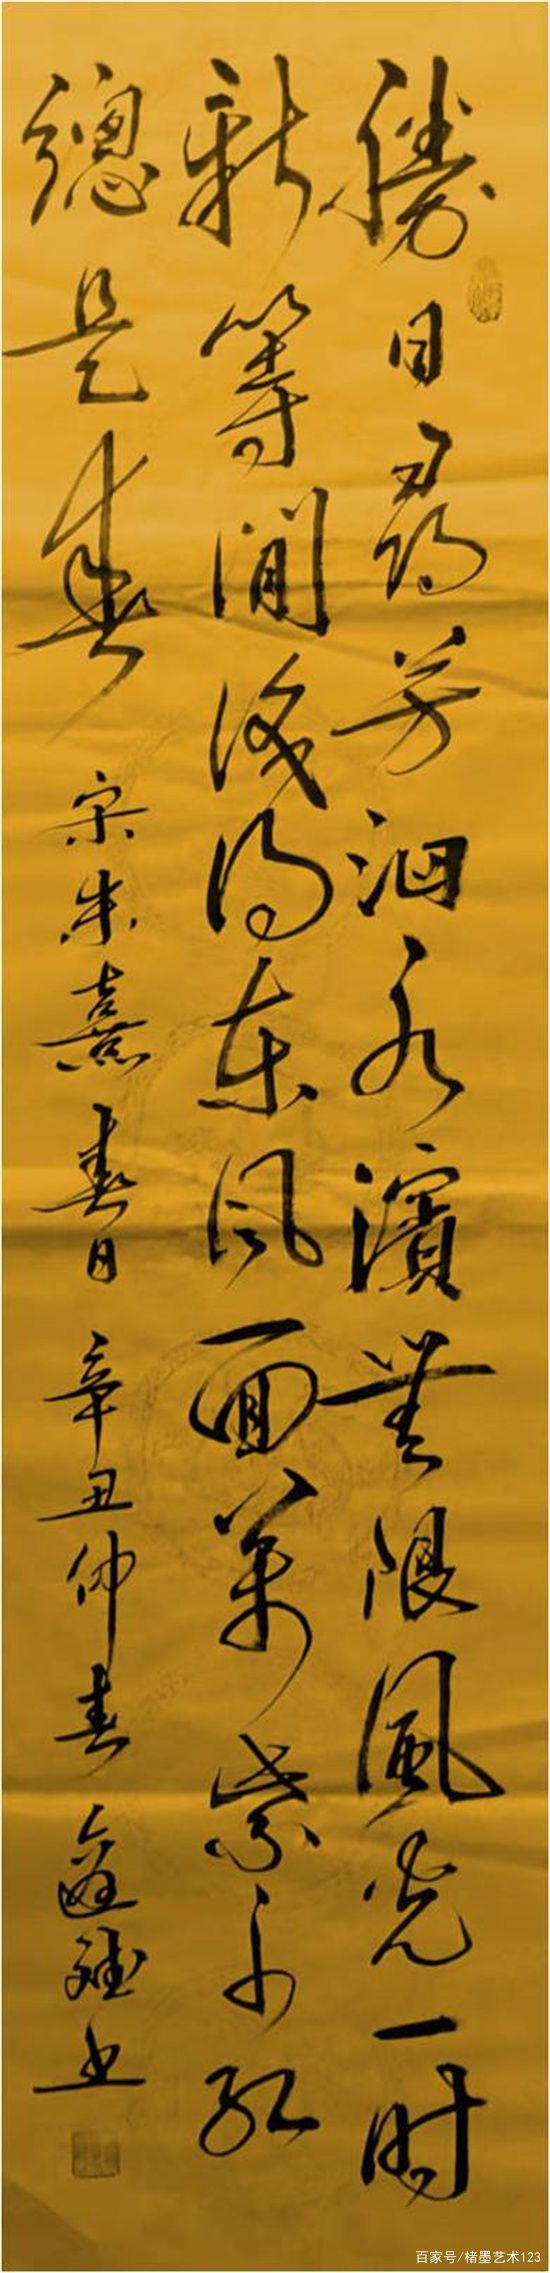 勝日尋芳泗水濱無限風光一時
新等閒識得東風面萬紫千紅
總是春 宋朱熹春日 辛丑仲春 书
百家号/楮墨艺术123